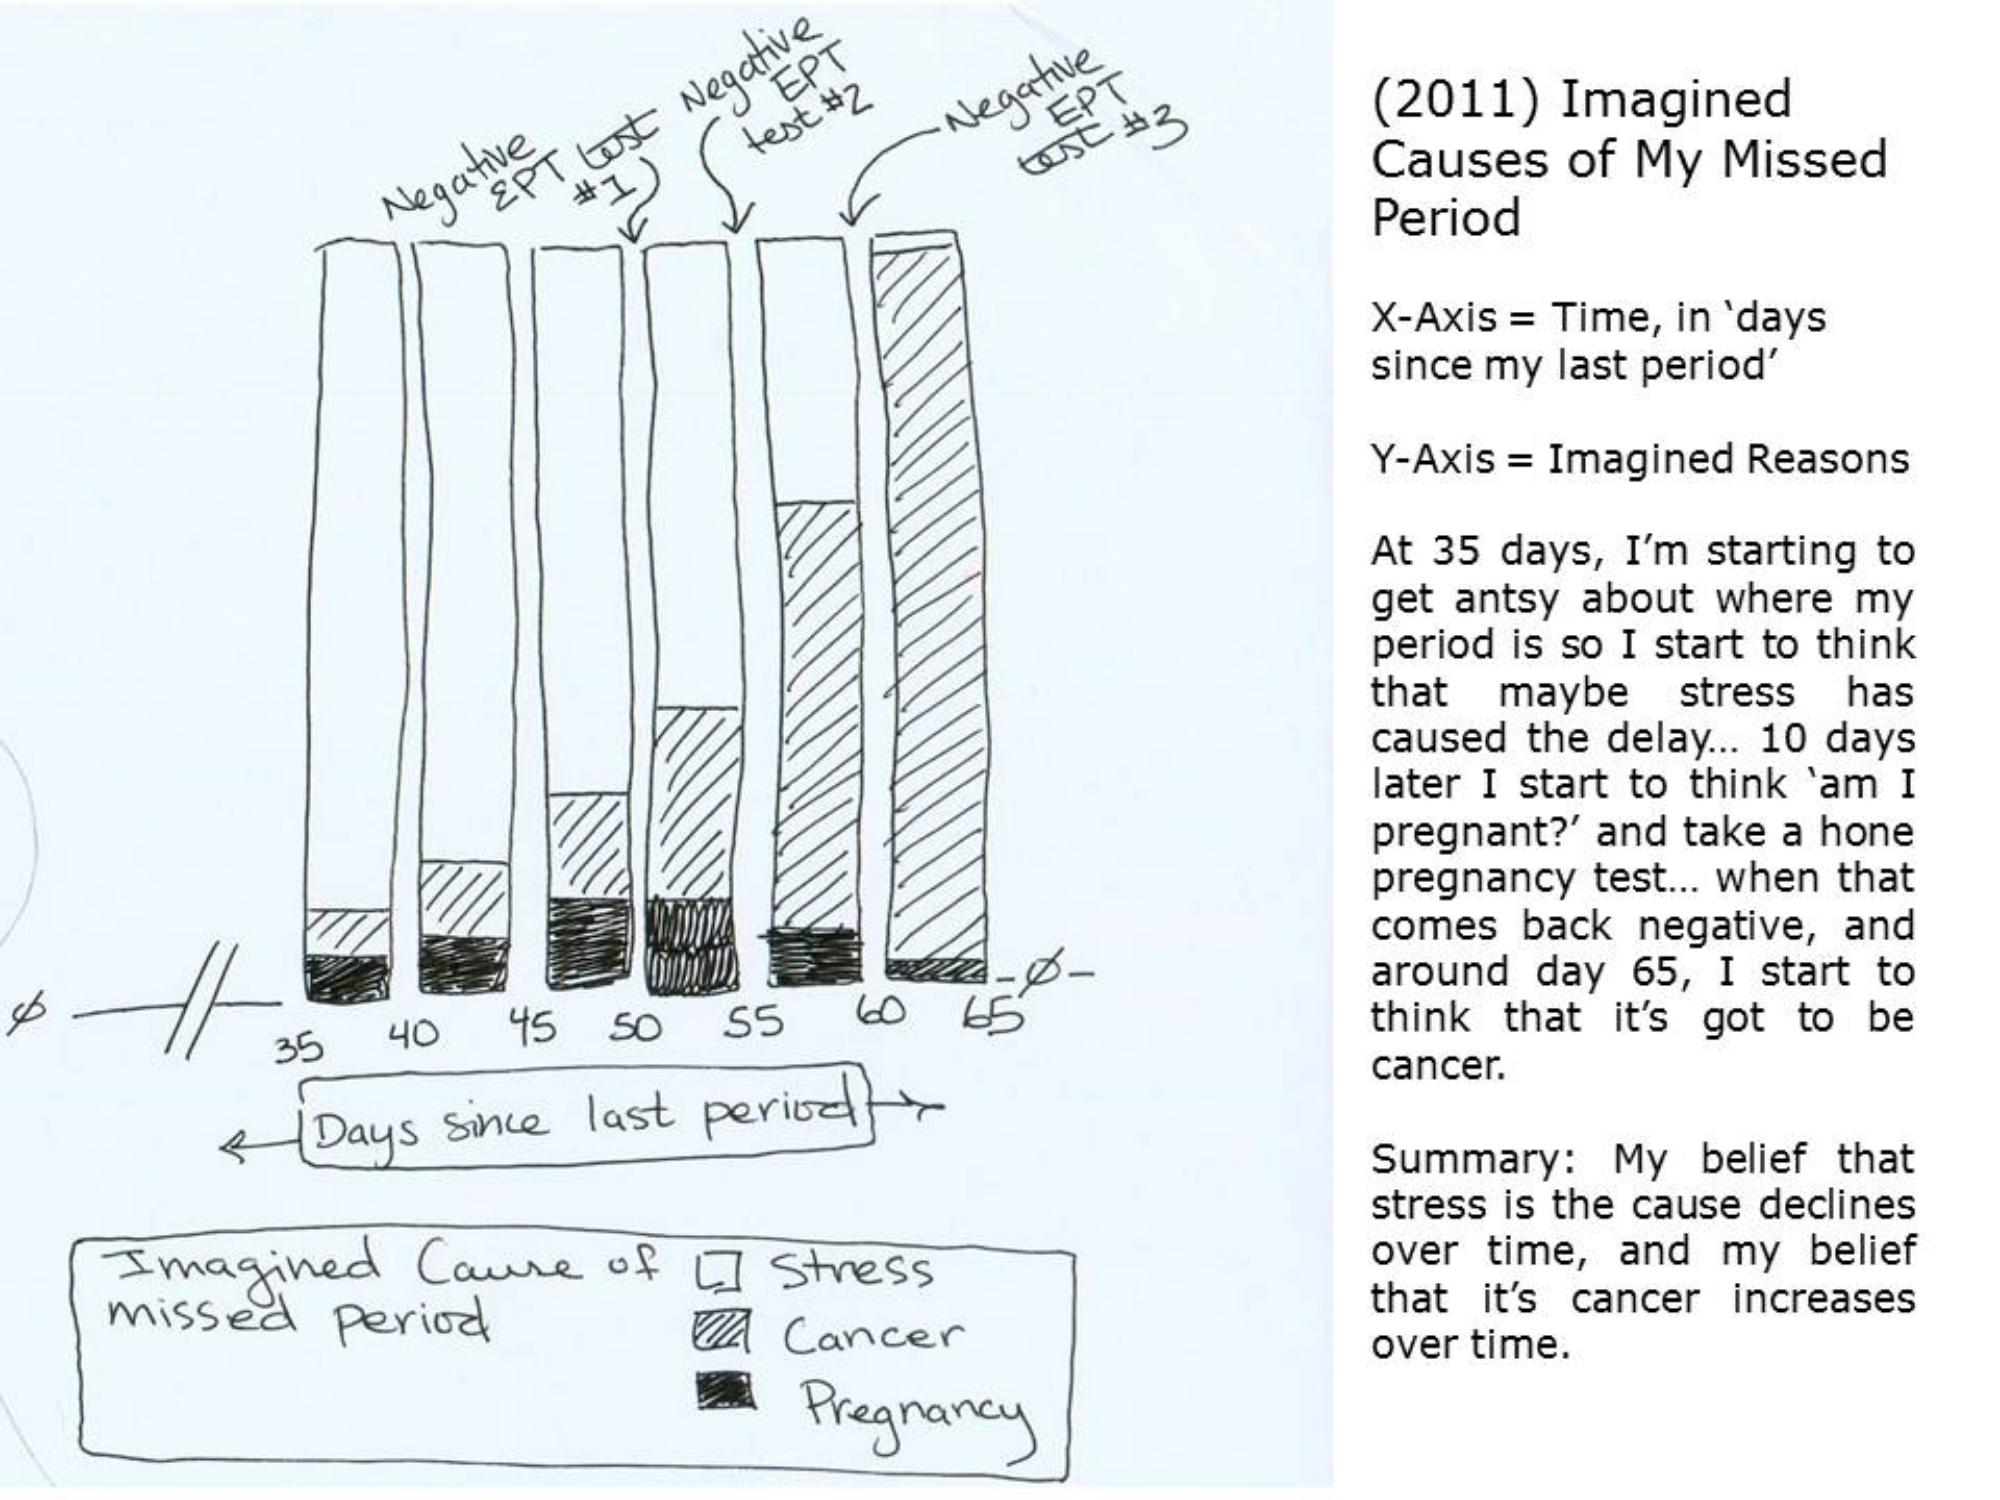 Negative
EPT test
#1
Negative
EPT
test #2
Negative
EPT
test #3
ø
35
40
45
50
55
60
65
-ø-
Days since last period
Imagined Cause of
missed period
Stress
Cancer
Pregnancy
(2011) Imagined
Causes of My Missed
Period
X-Axis = Time, in ‘days
since my last period’
Y-Axis = Imagined Reasons
At 35 days, I’m starting to
get antsy about where my
period is so I start to think
that maybe stress has
caused the delay… 10 days
later I start to think ‘am I
pregnant?’ and take a hone
pregnancy test… when that
comes back negative, and
around day 65, I start to
think that it’s got to be
cancer.
Summary: My belief that
stress is the cause declines
over time, and my belief
that it’s cancer increases
over time.